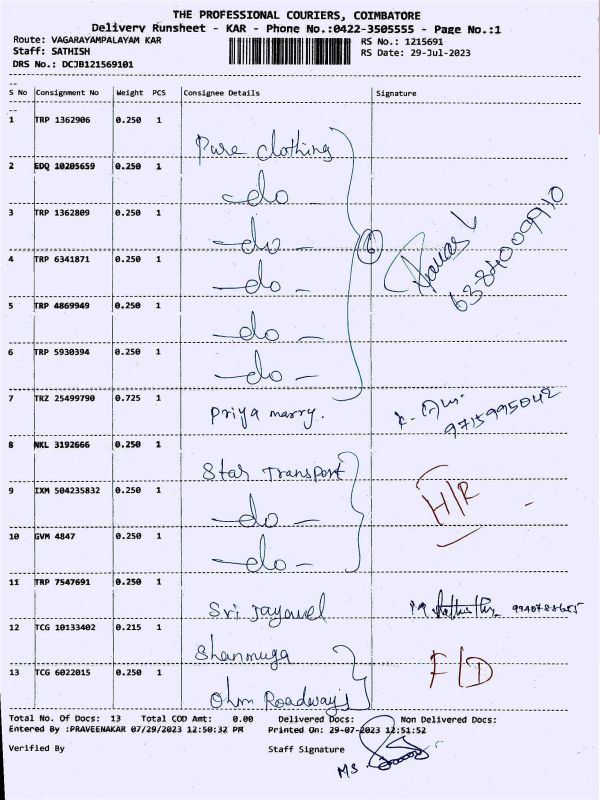 THE PROFESSIONAL COURIERS, COIMBATORE
Delivery Runsheet - KAR - Phone No.:0422-3505555 - Page No.:1
Route: VAGARAYAMPALAYAM KAR
RS No.: 1215691
Staff: SATHISH
RS Date: 29-Jul-2023
DRS No.: DCJB121569101
S No Consignment No Weight PCS Consignee Details Signature
1 TRP 1362906 0.250 1
Pure clothing
2 EDQ 10205659 0.250 1
-do-
3 TRP 1362809 0.250 1
-do-
6
6384009910
4 TRP 6341871 0.250 1
-do-
5 TRP 4869949 0.250 1
-do-
6 TRP 5930394 0.250 1
-do-
7 TRZ 25499790 0.725 1
Priya marry.
9715995042
8 NKL 3192666 0.250 1
Star Transport
9 IXM 504235832 0.250 1
-do-
H/R
10 GVM 4847 0.250 1
-do-
11 TRP 7547691 0.250 1
Sri Jayavel
12 TCG 10133402 0.215 1
Shanmuga
F/D
13 TCG 6022015 0.250 1
Ohm Roadways
Total No. Of Docs: 13 Total COD Amt: 0.00 Delivered Docs: Non Delivered Docs:
Entered By :PRAVEENAKAR 07/29/2023 12:50:32 PM Printed On: 29-07-2023 12:51:52
Verified By Staff Signature
MS.